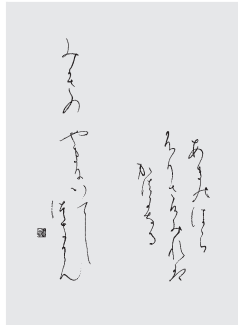 あまのはら
ふりさけみれは
かすかなる
みかさの
やまにいてし
つきかも